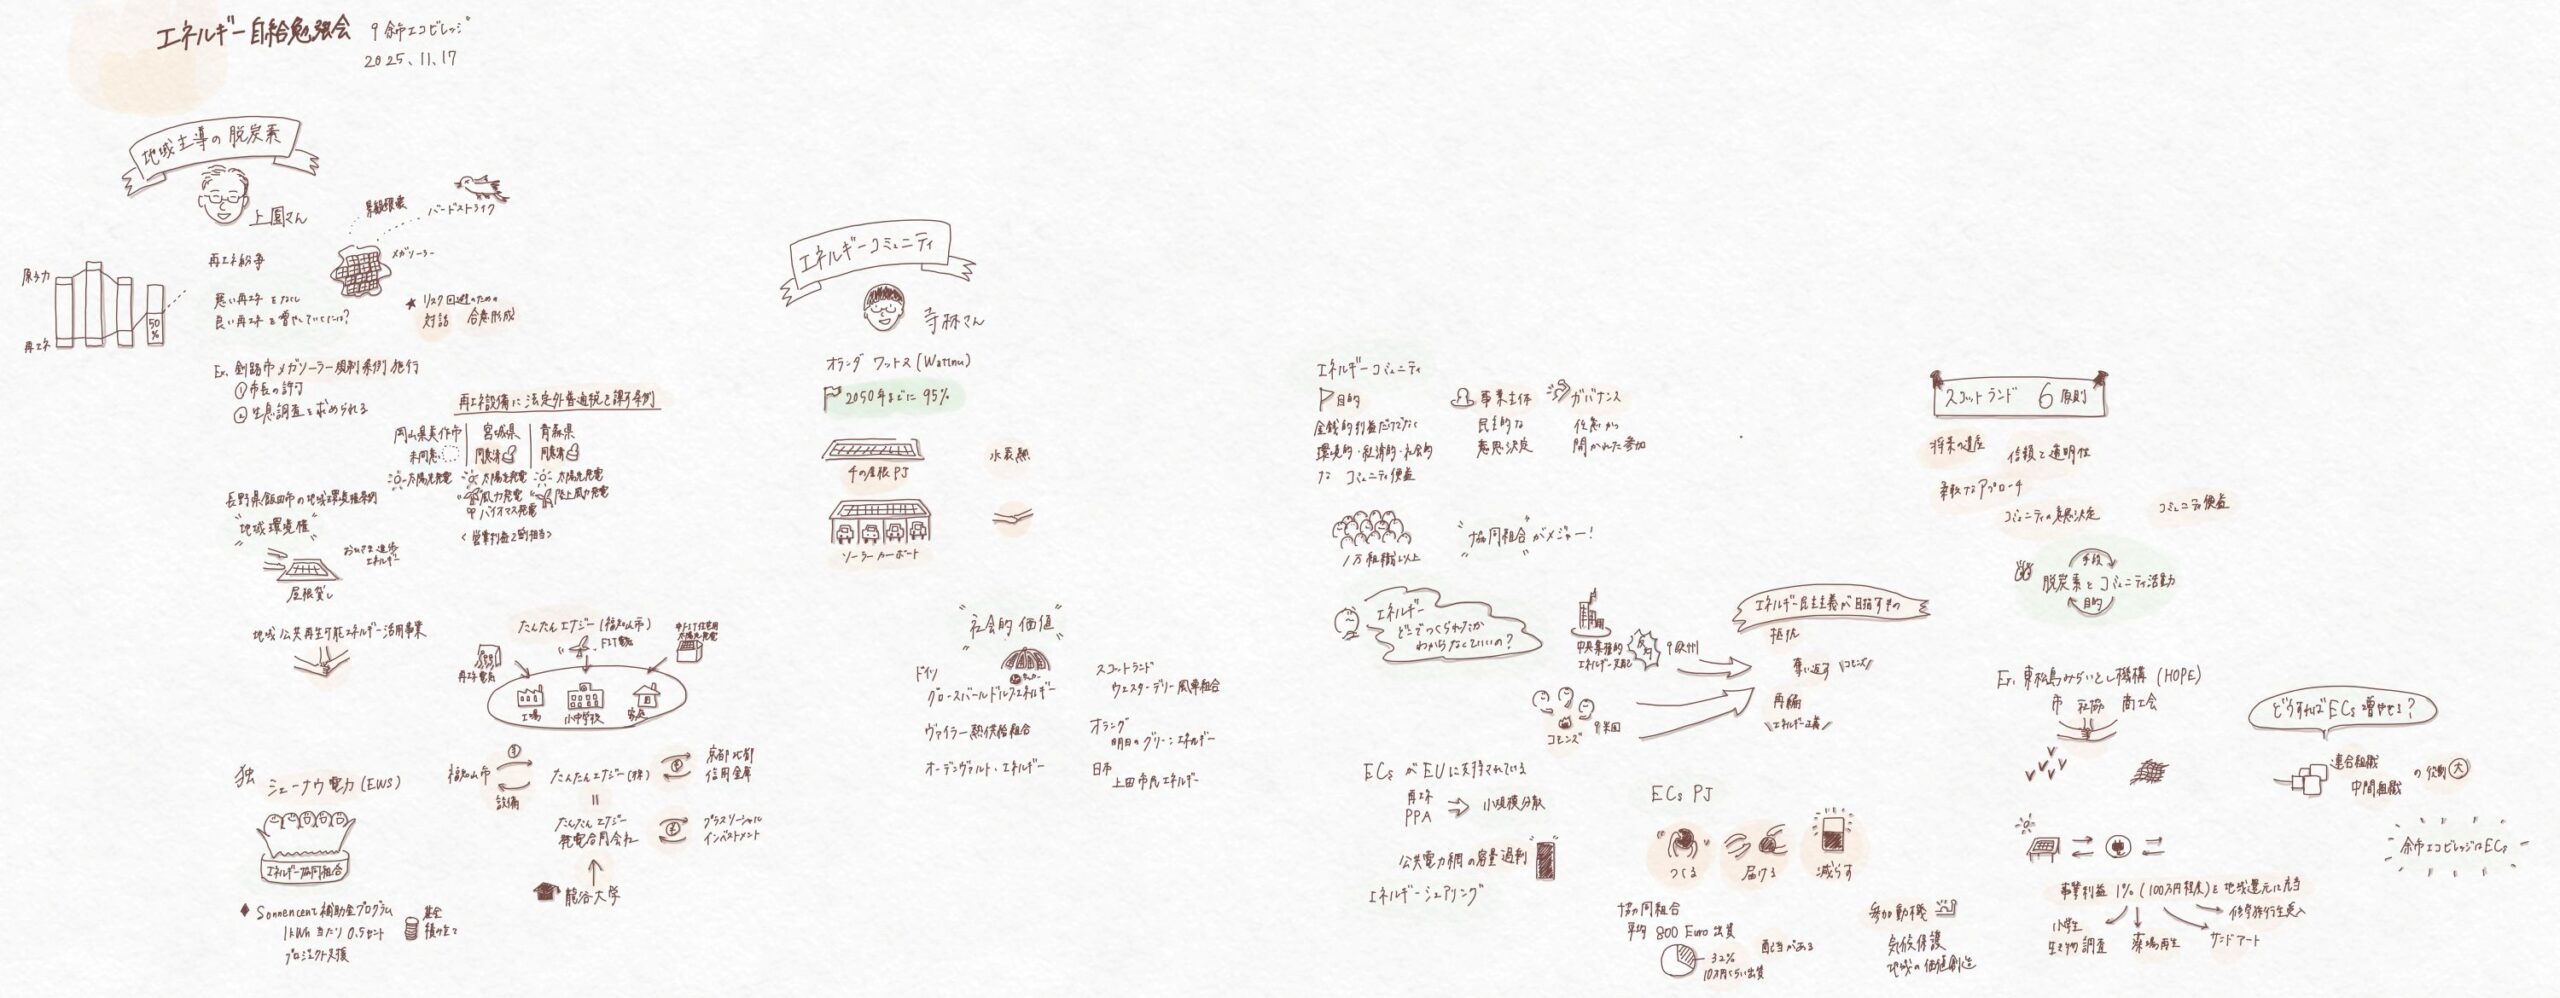 エネルギー自給勉強会
余市エコビレッジ
2025.11.17
地域主導の脱炭素
上園さん
景観破壊
バードストライク
メガソーラー
再エネ紛争
原子力
再エネ
50%
悪い再エネをなくし
良い再エネを増やしていくには?
★リスク回避のための
対話 合意形成
Ex. 釧路市メガソーラー規制条例施行
①市長の許可
②生息調査を求められる
再エネ設備に法定外普通税を課す条例
岡山県美作市
未同意
太陽光発電
宮城県
同意済
太陽光発電
風力発電
バイオマス発電
青森県
同意済
太陽光発電
陸上風力発電
<営業利益2割相当>
長野県飯田市の地域環境権条例
"地域環境権"
おひさま進歩
エネルギー
屋根貸し
地域公共再生可能エネルギー活用事業
たんたんエナジー(福知山市)
再エネ電気
FIT電気
卒FIT住宅用
太陽光発電
工場
小中学校
家庭
福知山市
設備
たんたんエナジー(株)
京都北都
信用金庫
たんたんエナジー
発電合同会社
プラスソーシャル
インベストメント
龍谷大学
独 シェーナウ電力(EWS)
エネルギー協同組合
◆Sonnencent補助金プログラム
1kWh当たり0.5セント
プロジェクト支援
基金
積み立て
エネルギーコミュニティ
寺林さん
オランダ ワットス(Wattnu)
2050年までに95%
4の屋根PJ
水表熱
ソーラーカーポート
"社会的価値"
ドイツ
グロースバールドルフエネルギー
ヴァイラー熱供給組合
オーデンヴァルト・エネルギー
スコットランド
ウェスターデリー風車組合
オランダ
明日のグリーンエネルギー
日本
上田市民エネルギー
エネルギーコミュニティ
目的
金銭的利益だけでなく
環境的・経済的・社会的
な コミュニティ便益
事業主体
民主的な
意思決定
ガバナンス
任意かつ
開かれた参加
1万組織以上
"協同組合"がメジャー!
エネルギー
どこでつくられたか
わからなくていいの?
中央集権的
エネルギー支配
反対
欧州
コモンズ
米国
エネルギー民主主義が目指すもの
抵抗
奪い返す
\コモンズ/
再編
\エネルギー正義/
ECsがEUに支持されている
再エネ
PPA
小規模分散
公共電力網の容量過剰
エネルギーシェアリング
ECs PJ
つくる
届ける
減らす
協同組合
平均 800 Euro 出資
32%
10万円くらい出資
配当がある
参加動機
気候保護
地域の価値創造
スコットランド 6原則
将来の遺産
信頼と透明性
柔軟なアプローチ
コミュニティの意思決定
コミュニティ便益
手段
脱炭素とコミュニティ活動
目的
Ex. 東松島みらいとし機構(HOPE)
市 社協 商工会
事業利益1%(100万円程度)を地域還元に充当
小学生
生き物調査
藻場再生
サンドアート
修学旅行生受入
どうすればECs増やせる?
連合組織
中間組織
の役割 大
余市エコビレッジはECs